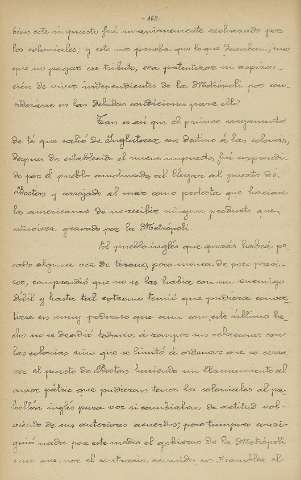 - 163 -
bién este impuesto fué unánimemente rechazado por
los coloniales; y esto nos prueba que lo que buscaban, mas
que no pagar ese tributo, era patentizar su aspira-
ción de vivir independientes de la Metrópoli por con-
siderarse en las debidas condiciones para ello.
Tan es así que el primer cargamento
de té que salió de Inglaterra con destino á las colonias,
después de establecido el nuevo impuesto, fué sorprendi-
do por el pueblo amotinado al llegar al puerto de
Boston y arrojado al mar como protesta que hacían
los americanos de no recibir ningún producto que
viniera gravado por la Metrópoli.
El pueblo inglés que quizás habría pe-
cado alguna vez de tirano, pero nunca de poco previ-
sor, comprendió que no se las había con un enemigo
débil y hasta tal extremo temió que pudiera conver-
tirse en muy poderoso que aun con este último he-
cho no se decidió todavía á romper sus relaciones con
las colonias sino que se limitó á ordenar que se cerra-
se el puerto de Boston haciendo un llamamiento al
amor patrio que pudieran tener los coloniales al pa-
bellón inglés para ver si cambiaban de actitud vol-
viendo de sus anteriores acuerdos; pero tampoco consi-
guió nada por este medio el gobierno de la Metrópoli
sino que por el contrario, reunidos en Asamblea el